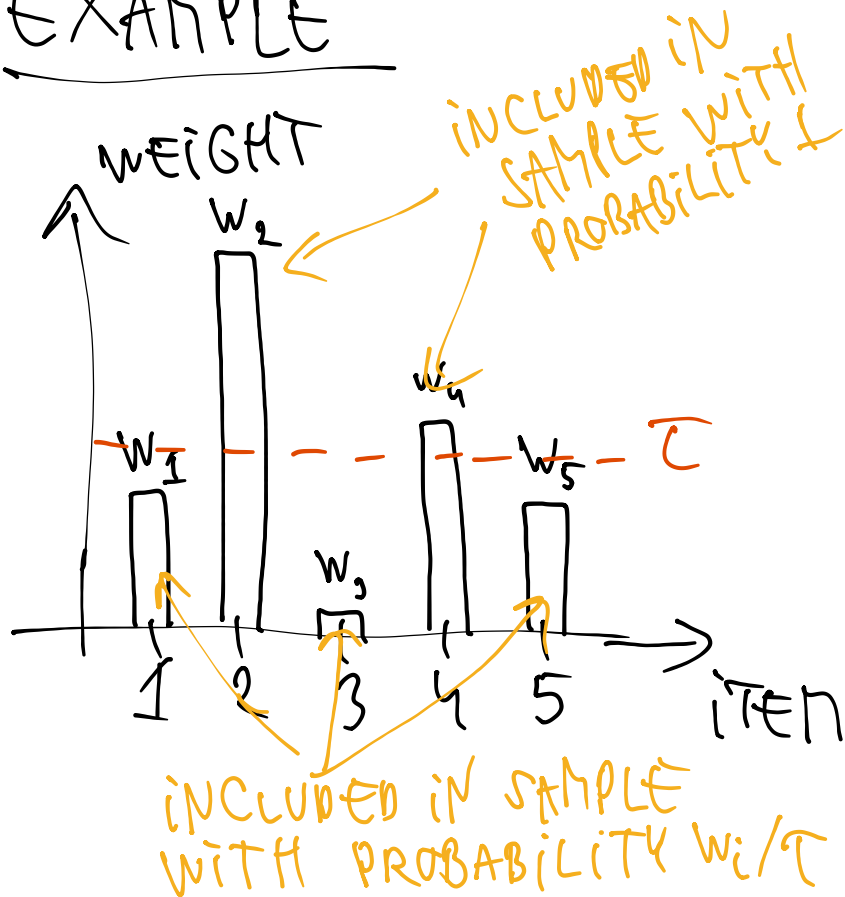 EXAMPLE
INCLUDED IN
SAMPLE WITH
PROBABILITY 1
WEIGHT
W2
W4
τ
W1
W5
W3
1 2 3 4 5
iTEM
iNCLUDED iN SAMPLE
WiTH PROBABiLiTY Wi/τ